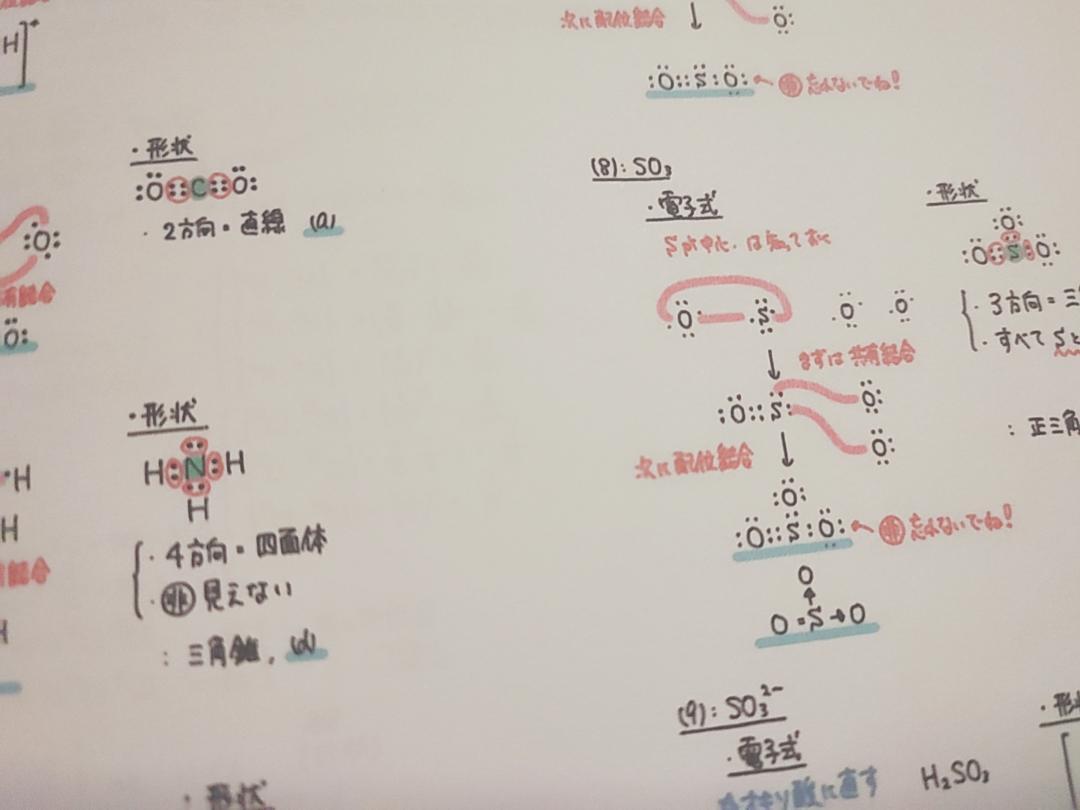 H]
・形状
:Ö::C::Ö:
・2方向=直線 (a)
:Ö:
・形状
H:N:H
H
・4方向=四面体
・非 見えない
:三角錐, (d)
・形状
次に配位結合 ↓
:Ö::S:Ö: ← 非 忘れないでね!
(8): SO₃
・電子式
Sが中心、は知っておく
O S O O
↓ まずは共有結合
:Ö::S: O
O
次に配位結合 ↓
:O:
:Ö::S:Ö: ← 非 忘れないでね!
O
↑
O=S→O
・形状
:O:
:O::S:O:
・3方向=三
・すべてSと
:正三角
(9): SO₃²⁻
・電子式
オキソ酸に直す H₂SO₃